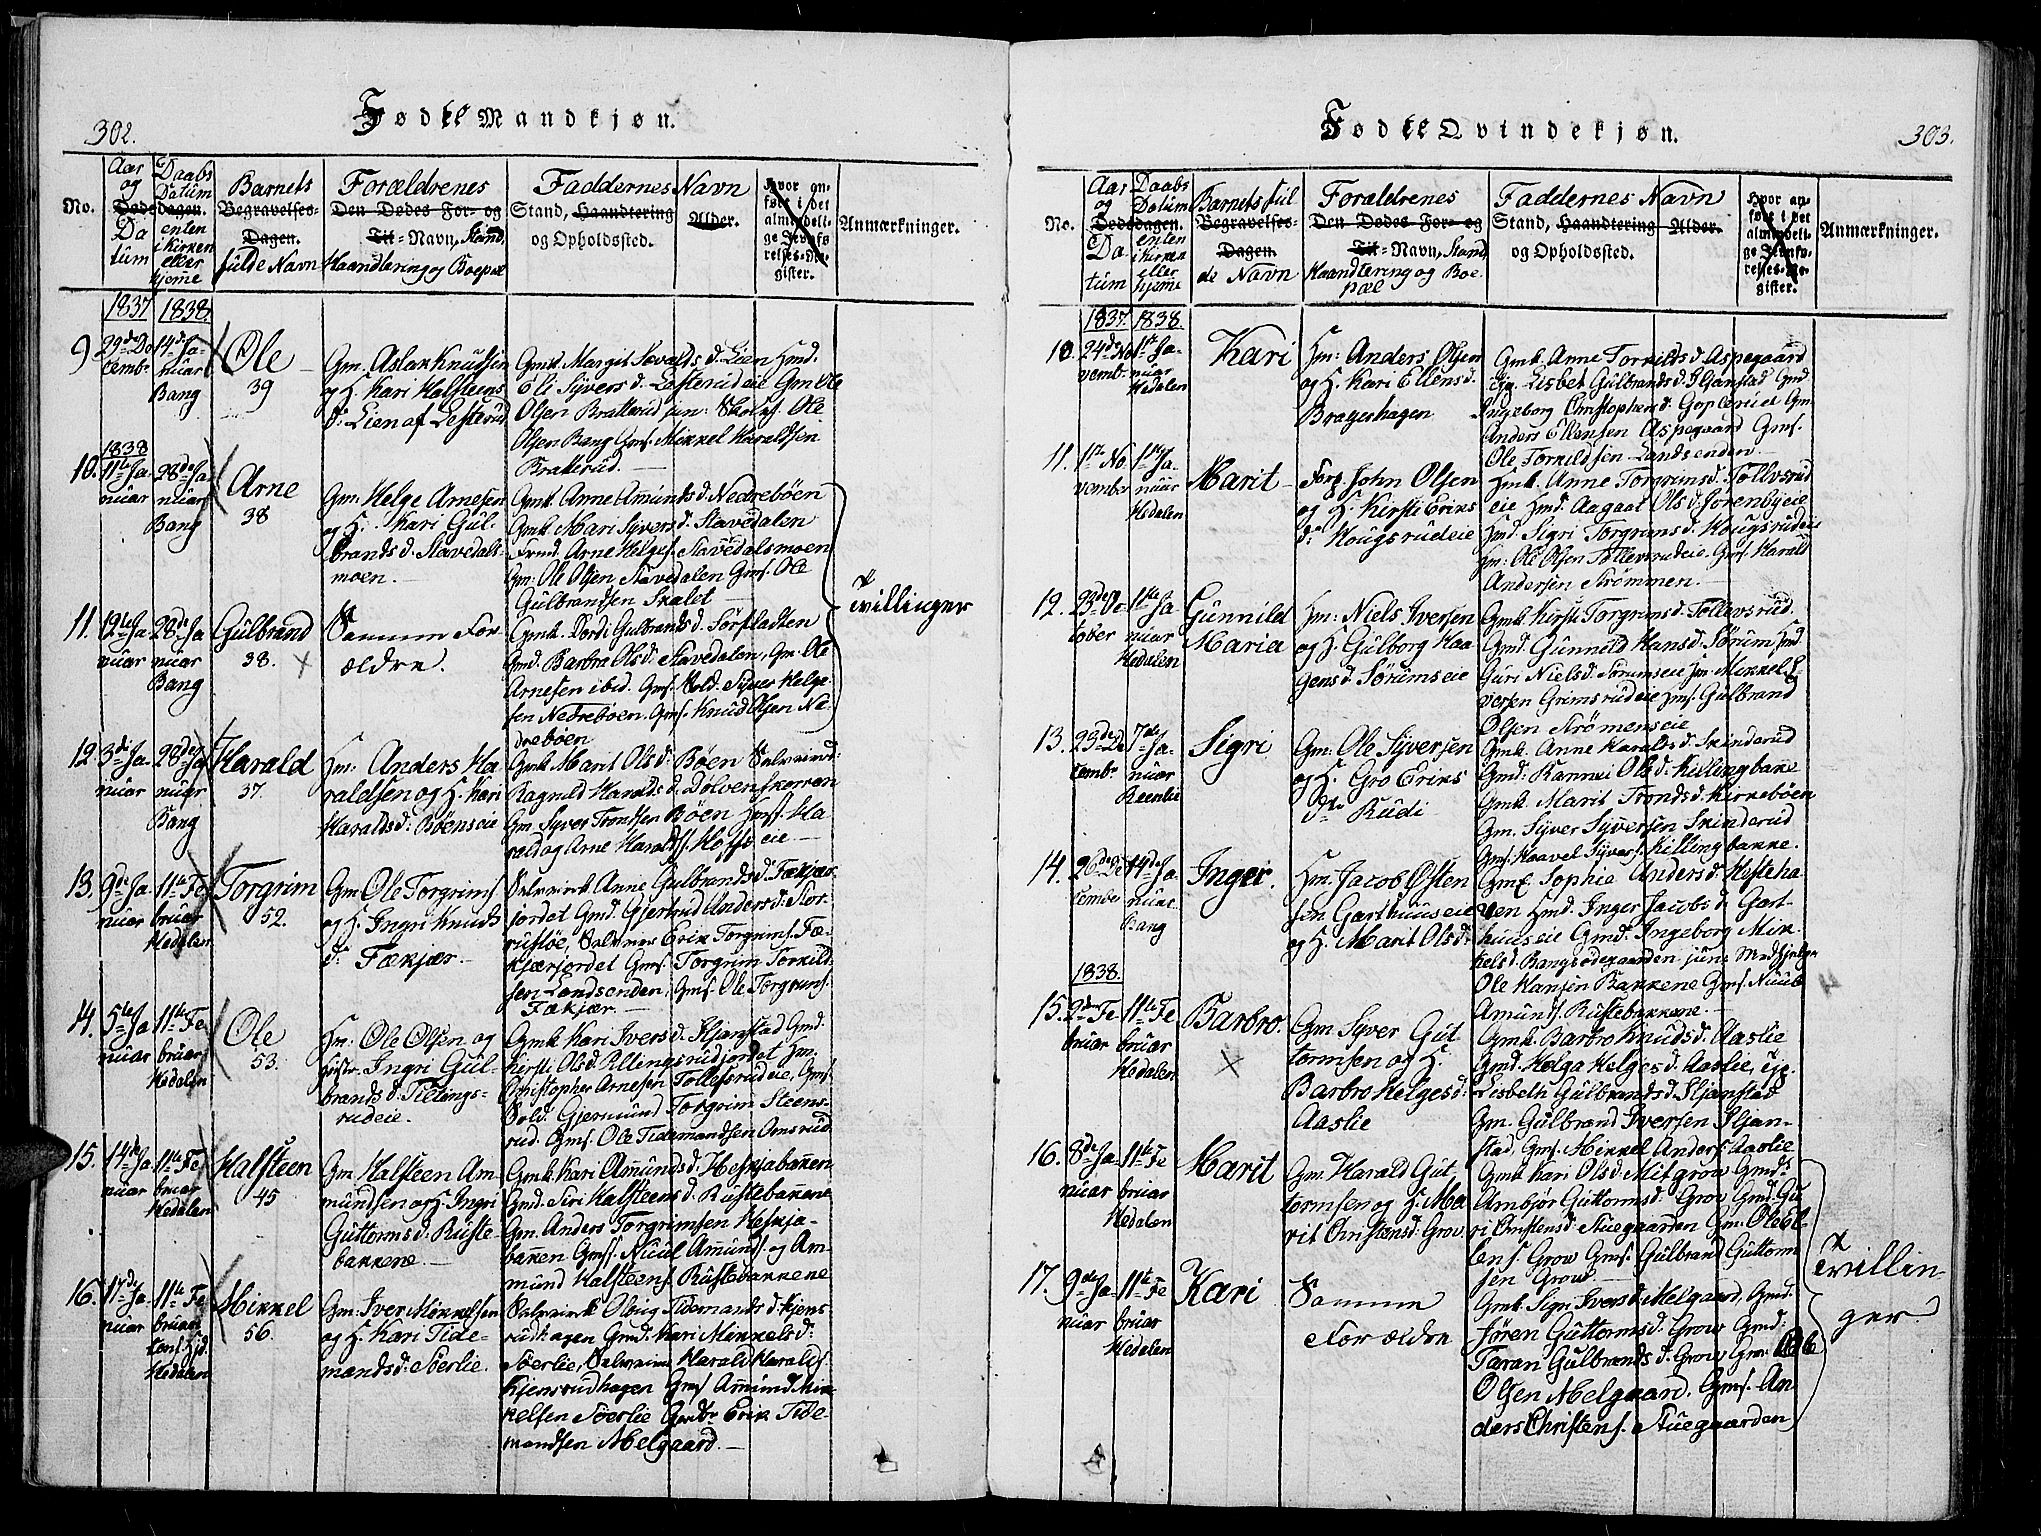 302.
Fødte Mandkjøn.
No.
Aar og Dødsdagen. Datum
Daabs Datum enten i Kirken eller hjeme
Barnets Begravelses-Dagen. fulde Navn
Forældrenes Den Dødes For- og Til-Navn, Stand, Haandtering og Boepæl
Faddernes Navn Stand, Haandtering Alder. og Opholdssted.
Hvor anført i det almindelige Jevnførelses-Register.
Anmærkninger.
1837
1838.
9
29de De
cembr
14de Ja-
nuar
Bang
Ole
39
Gm. Aslak Knudsen
og H. Kari Halsteens
d: Lien af Lesterud
Gmk. Margit Sevalds d. Lien Hmd.
Eli Syvers d. Lesterudeie Gm Ole
Olsen Bratterud jun: Skolf. Ole
Olsen Bang Gmf. Mikkel Haraldsen
Bratterud.
1838
10.
11te Ja
nuar
28de Ja
nuar
Bang
Arne
38
Gm. Helge Arnesen
og H. Kari Gul-
brands d. Stavedals-
moen.
Gmk. Anne Amunds d. Nedrebøen
Gmk. Mari Syvers d. Stavedalen
Arne Helges. Stavedalsmoen
Gm: Ole Olsen Stavedalen Gmf. Ole
Gulbrandsen Skalet
Tvillinger
11.
12te Ja
nuar
28de Ja
nuar
Bang
Gulbrand
38.
Samme For-
ældre.
Gmk. Dordi Gulbrands d. Sørstadten
Gmd. Barbro Ols d. Stavedalen, Gm. Ole
Arnesen ibid. Gmf. Sold: Syver Helge
sen Nedrebøen. Gmf. Knud Olsen Ne-
drebøen
12
3die Ja-
nuar
28de Ja
nuar
Bang
Harald
37.
Hm. Anders Ha-
raldsen og H. Kari
Haralds d: Bøenseie
Gmk. Marit Ols d: Bøen
Ragnild Haralds d. Dølvenskorken
Gm. Syver Trondsen Bøen Hmf. Ha
rald og Arne Harald s. Hoffseie
13.
9de Ja-
nuar
11te Fe
bruar
Hedalen
Torgrim
52.
Gm Ole Torgrims.
og H. Ingri Knuds
d: Fækjær
Anne Gulbrands d. Fækjær-
jordet Gmd. Gjertrud Anders d: Stor-
rustøe, Erik Torgrims. Fæ-
kjærjordet Gmf. Torgrim Torkild-
sen Landsenden, Gmf. Ole Torgrims.
Fækjær.
14.
5te Ja
nuar
11te Fe
bruar
Hedalen
Ole
53.
Hm: Ole Olsen og
Ingri Gul-
brands d: Tillings-
rudeie.
Gmk Kari Ivers d: Iljanstad Gmd.
Kirsti Ols d. Pillingsrudjordet Hm.
Christopher Arnesen Tollefsrudeie, Gmf.
Sold. Gjermund Torgrim Steens-
rud. Gmf. Ole Tidemandsen Omsrud
15.
14de Ja
nuar
11te Fe
bruar
Hedalen
Halsteen
45
Gm Halsteen Am-
mundsen og H. Ingri
Guttorms d: Ruste-
bakkene.
Gmk Kari Ammunds d: Heskjabakken
Gmd. Siri Halsteens d: Rustebakkene
Gm. Anders Torgrimsen Heskja-
bakken Gmf. Nuul Amunds. og Am-
mund Halsteens. Rustebakkene
16.
17de Ja
nuar
11te Fe
bruar
Hedalen
Mikkel
56.
Gm. Iver Mikkelsen
og H. Kari Tide-
mands d: Søerlie.
Olaug Tidemands d. Kjens-
rudhagen Gmd. Kari Mikkels d:
Søerlie, Harald Haralds.
Kjensrudhagen Gmf. Amund Mik-
kelsen Søerlie Erik Tide-
mandsen Melgaard.
303.
Fødte Qvindekjøn.
No.
Aar og Dødsdagen. Datum
Daabs Datum enten i Kirken eller hjeme
Barnets ful Begravelses-Dagen. de Navn
Forældrenes Den Dødes For- og Til-Navn, Stand Haandtering og Boepæl
Faddernes Navn Stand, Haandtering Alder. og Opholdssted.
Hvor anført i det almindelige Jevnførelses-Register.
Anmærkninger.
1837.
1838.
10.
24de No
vemb.
1ste Ja-
nuar
Hedalen
Kari
Hm: Anders Olsen
og H. Kari Ellens d.
Bragerhagen
Gmk. Anne Torkilds d. Aspegaard
Lisbet Gulbrands d. Iljanstad Gmd
Ingeborg Christophers d. Goplerud Gm.
Anders Ellensen Aspegaard Gmf.
Ole Torkildsen Landsenden
11.
1ste No
vember
1ste Ja-
nuar
Hedalen
Marit
John Olsen
og H. Kirsti Eriks
d: Hougsrudeie
Hmk. Anne Torgrims d. Tollevsrud
eie Hmd. Aagaat Ols d. Jørenbyeie
Hmd. Sigri Torgrims d. Hougsrudeie
Hm: Ole Olsen Tollevsrudeie Gmf. Harald
Andersen Strømmen.
12.
23de Oc-
tober
1ste Ja
nuar
Hedalen
Gunnild
Maria
Hm: Niels Iversen
og H. Gulborg Haa
gens d. Sørumseie
Gmk. Kirsti Torgrims d. Tollevsrud.
Gmd. Gunnild Hans d. Sørum Hmd.
Guri Niels d. Sørumseie Hm Mikkel I-
versen Grimsrudeie Hmf. Gulbrand
Olsen Strømenseie
13.
23de De
cembr
7de Ja-
nuar
Reenlie
Sigri
Gm: Ole Syversen
og H. Gro Eriks
dr. Rudi
Gmk. Anne Haralds d. Skinderud
Gmd: Rannei Ols d. Killingbake
Gmk. Marit Tronds d. Kirkebøen
Gm. Syver Syversen Skinderud
Gmf. Haavel Syvers. Killingbakke.
14.
26de De
cember
14de Ja
nuar
Bang
Inger.
Hm. Jacob Østen
sen Garthuuseie
og H. Marit Ols d.
Gmk. Sophie Anders d: Hesteha-
ven Hmd. Inger Jacobs d. Gart-
huuseie Gmd. Ingeborg Mik-
kels d. Bangsødegaarden jun:
Ole Hansen Bakkene Gmf. Nuub
Amunds. Rustebakkene.
1838.
15.
2den Fe
bruar
11te Fe
bruar
Hedalen
Barbro.
Gm Syver Gut
tormsen og H.
Barbro Helges d:
Aaslie
Gmk. Barbro Knuds d. Aaslie
Gmd. Helga Helges d: Aaslie,
Lisbeth Gulbrands d. Iljanstad
Gm. Gulbrand Iversen Iljan-
stad, Gmf. Mikkel Anders. Aaslie
16.
8de Ja-
nuar
11te Fe
bruar
Hedalen
Marit
Gm. Harald Gut
tormsen og H. Ma
rit Christens d. Grov
Gmk Kari Ols d. Mitgrov Gmd.
Ambjør Guttorms d. Grov Gmd. Gu
ri Christens d. Stuegaarden Gm: Ole El-
lens. Grov Gmf. Gulbrand Guttorm
sen Grov
Tvillin-
ger
17.
9de Ja-
nuar
11te Fe
bruar
Hedalen
Kari
Samme
Forældre
Gmk. Sigri Ivers d. Melgaard, Gmd.
Jøren Guttorms d: Grov Gmd:
Taran Gulbrands d. Grov Gm: Ole
Olsen Melgaard. Gmf. An
ders Christens. Stuegaarden